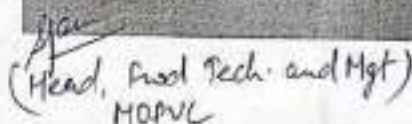 (Head, Food Tech. and Mgt)
MOPVC